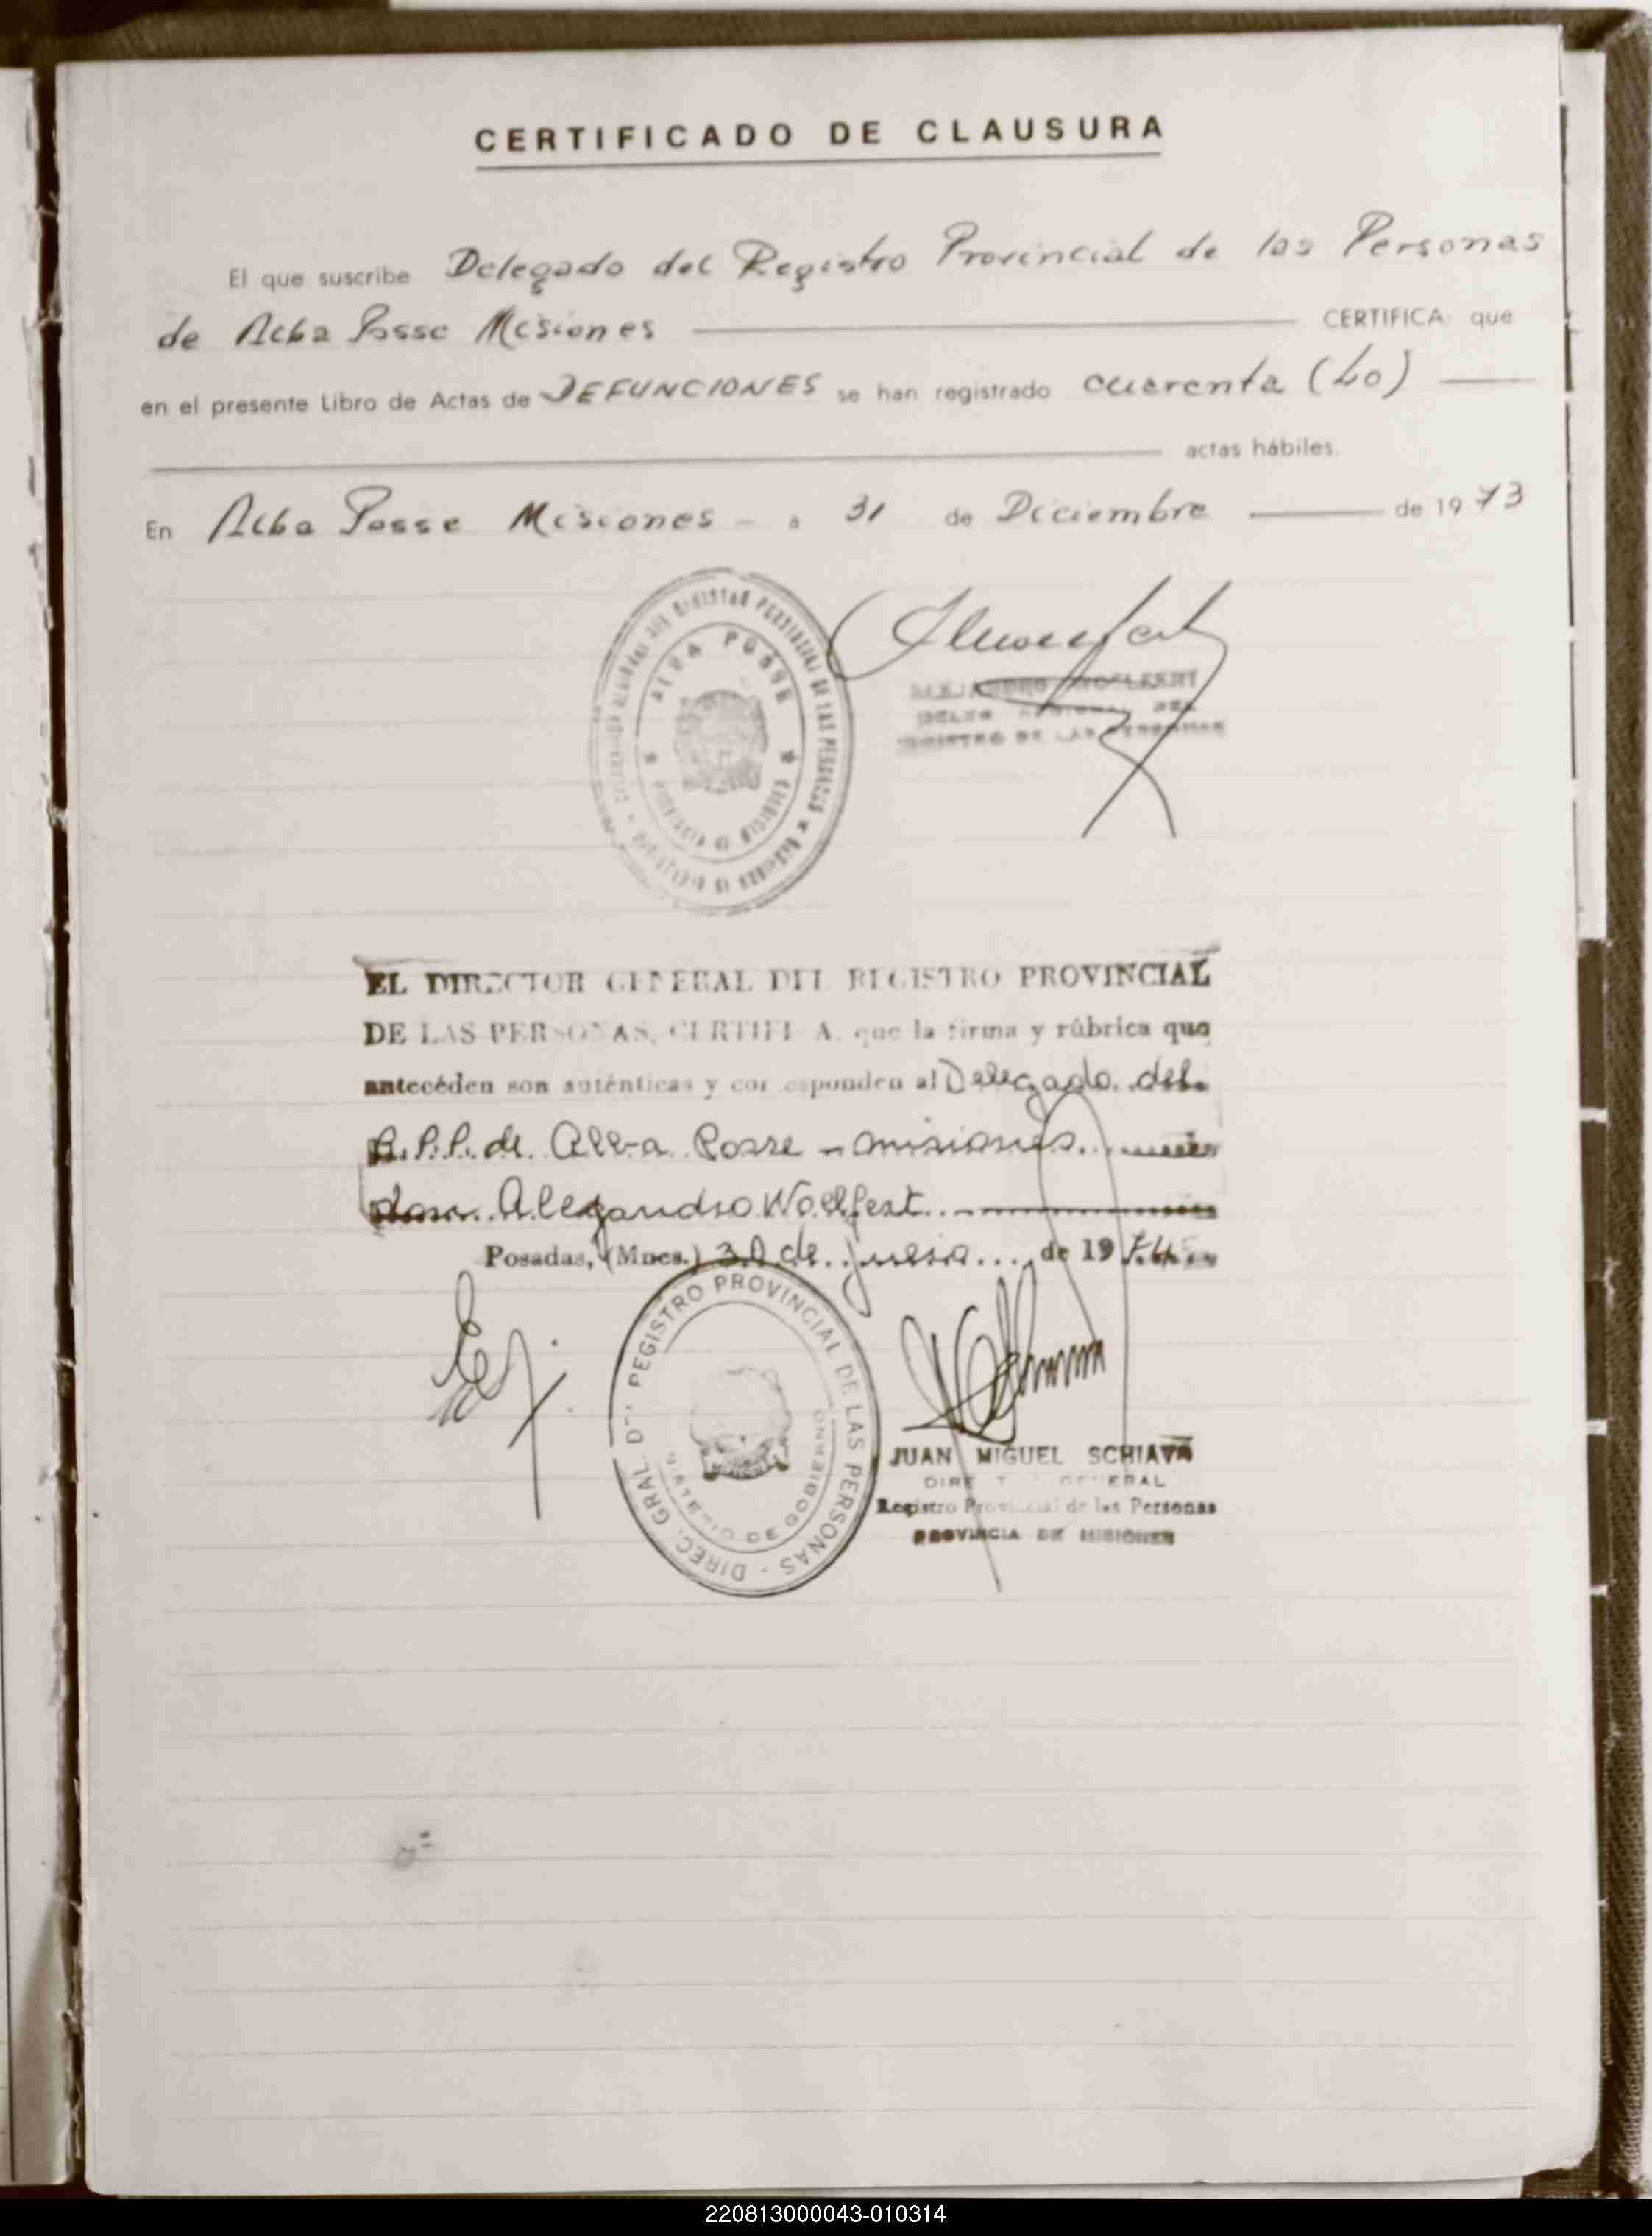 CERTIFICADO DE CLAUSURA
El que suscribe Delegado del Registro Provincial de las Personas
de Alba Posse Misiones CERTIFICA que
en el presente Libro de Actas de DEFUNCIONES se han registrado cuarenta (40)
actas hábiles.
En Alba Posse Misiones - a 31 de Diciembre de 1973
REGISTRO PROVINCIAL DE LAS PERSONAS
ALBA POSSE
PROVINCIA DE MISIONES
ALEJANDRO WOELFERT
DELEG REGIONAL DEL
REGISTRO DE LAS PERSONAS
EL DIRECTOR GENERAL DEL REGISTRO PROVINCIAL
DE LAS PERSONAS, CERTIFICA que la firma y rúbrica que
antecéden son auténticas y corresponden al Delegado del
R.P.P. de Alba Posse - Misiones
don Alegandro Woelfert
Posadas, (Mnes.) 30 de de 1974
DIREC. GRAL. DEL REGISTRO PROVINCIAL DE LAS PERSONAS -
MINISTERIO DE GOBIERNO
JUAN MIGUEL SCHIAVA
DIRECTOR GENERAL
Registro Provincial de las Personas
PROVINCIA DE MISIONES
220813000043-010314